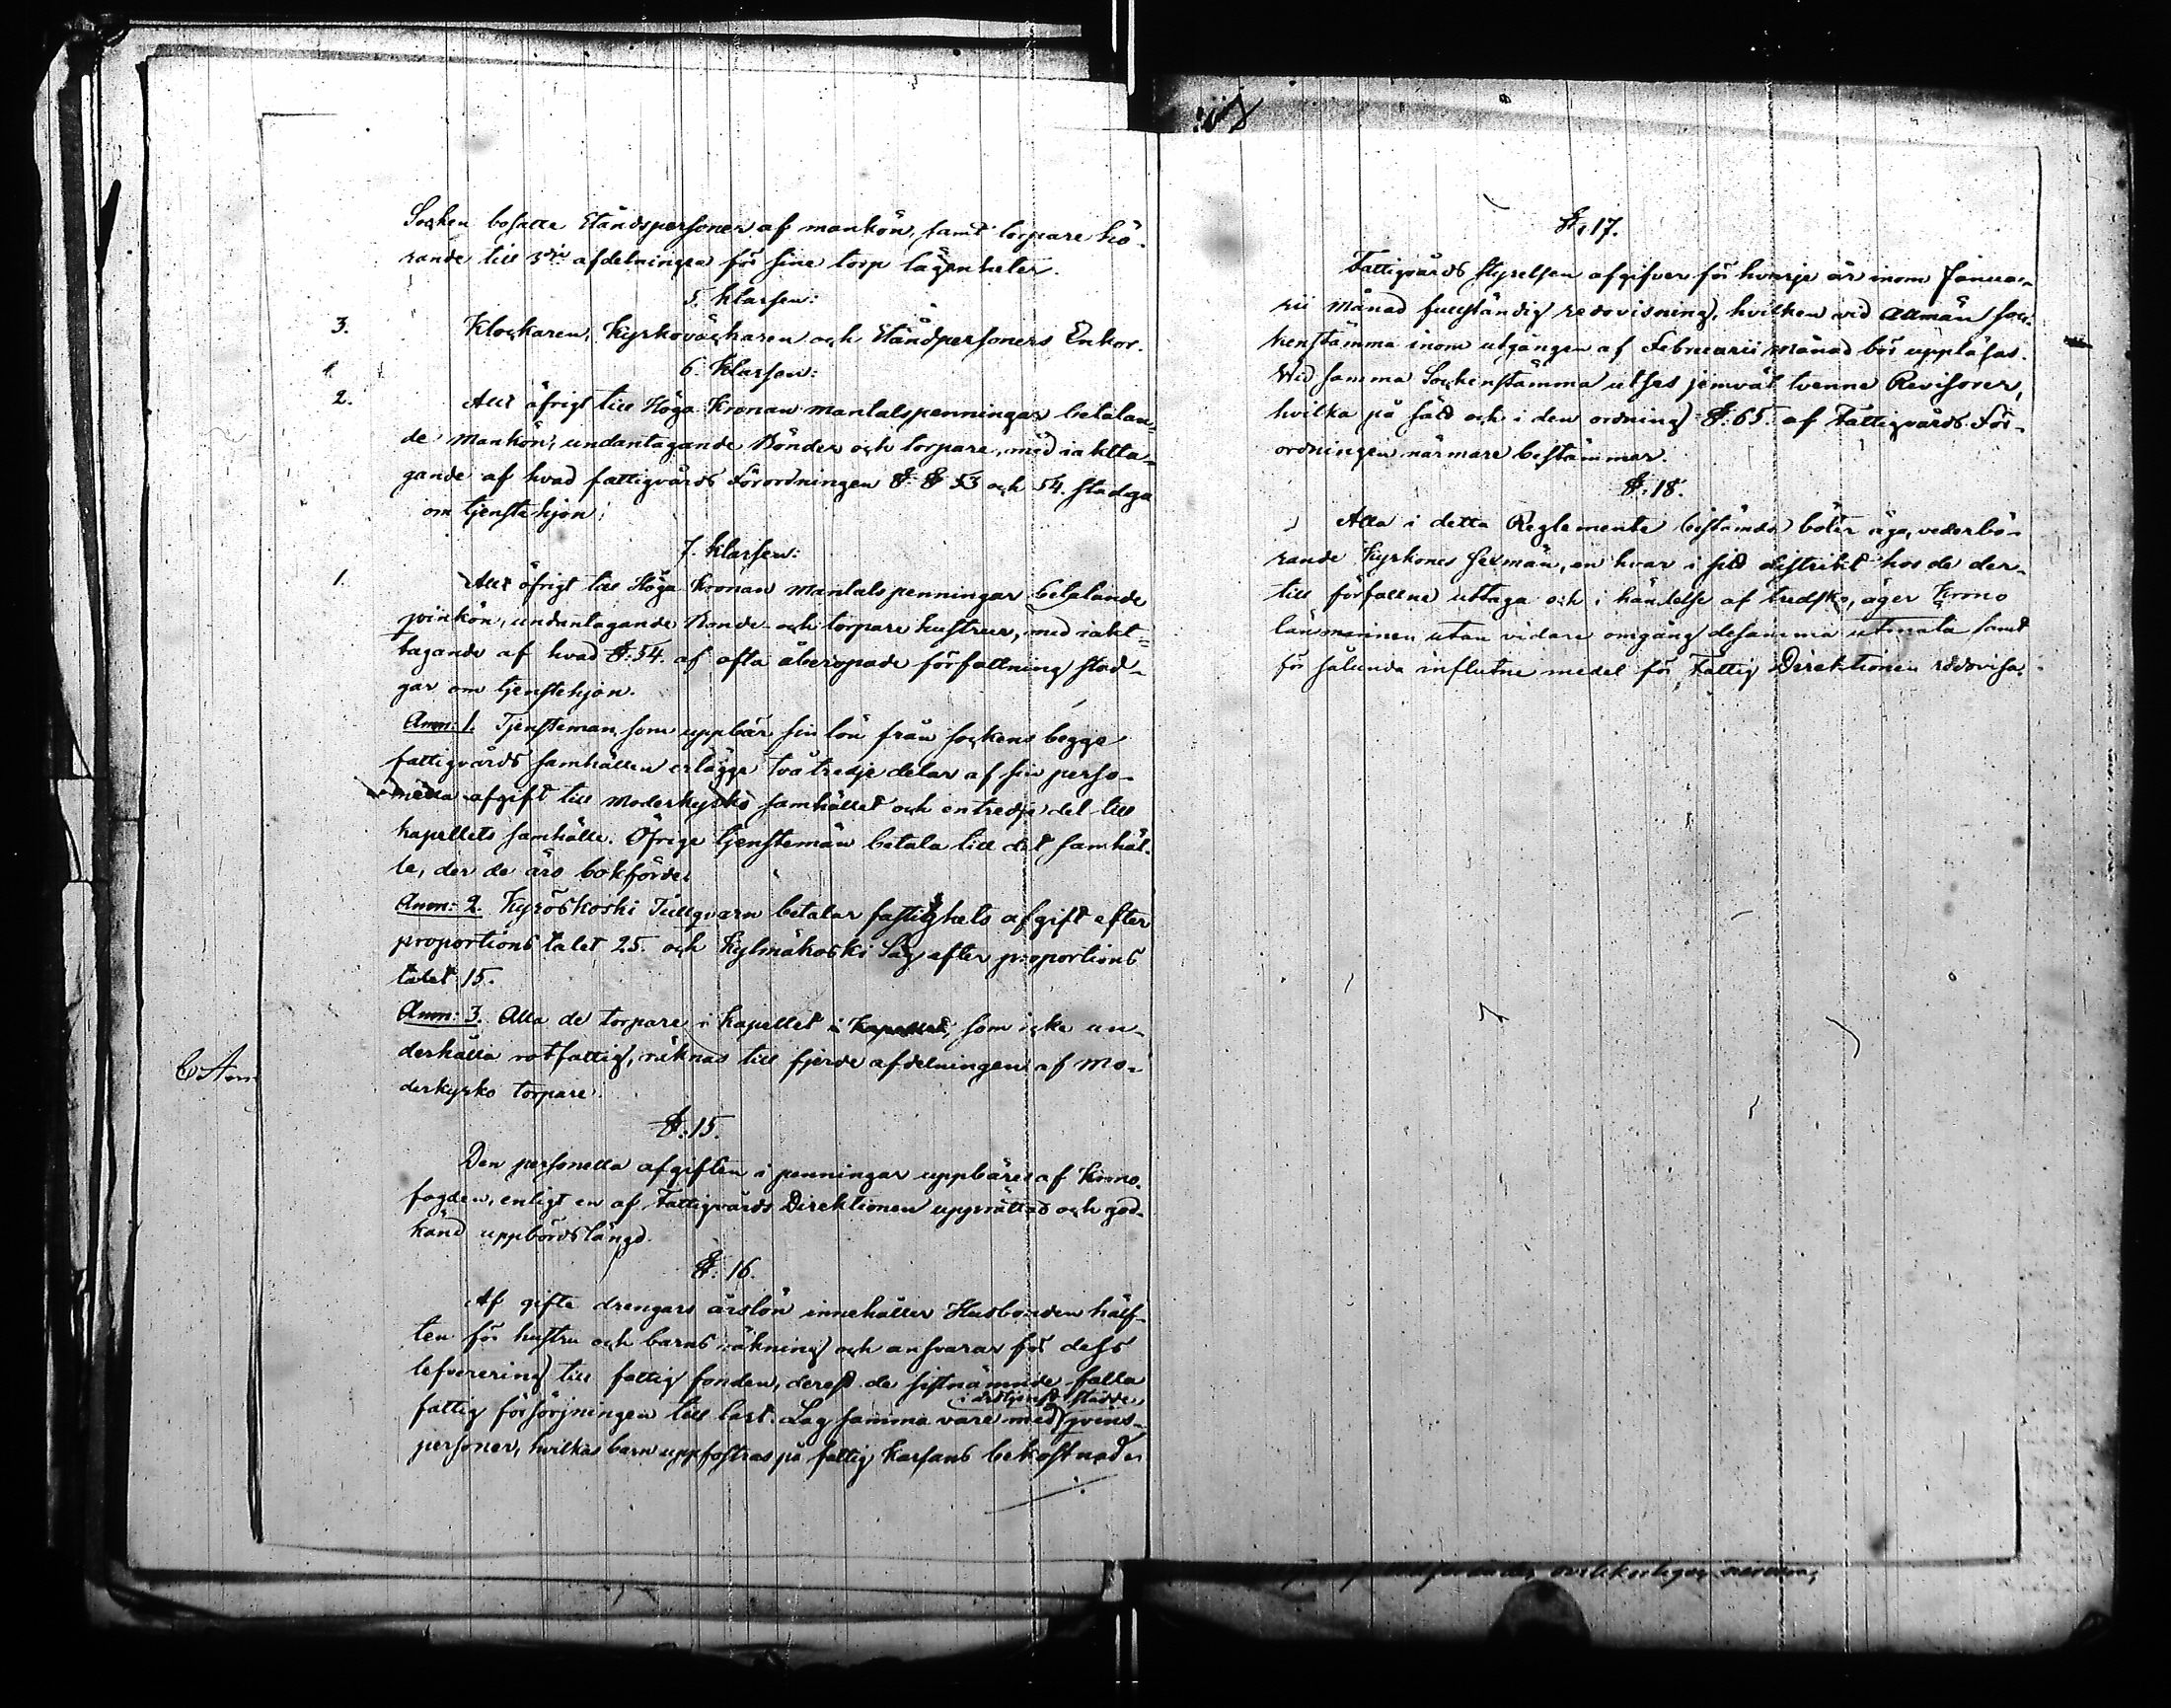 Socken bosatte Ståndspersoner af mankön, samt torpare hö-
rande till 3dje afdelningen för sine torp lägenheter.
5. Klassen:
3. Klockaren, Kyrkoväcktaren och Ståndpersoners Enkor.
1. 6. Klassen:
2. Allt öfrigt till Höga Kronan mantalspenningar betalan-
de mankön, undantagande Bönder och torpare, med iaktta-
gande af hvad fattigvårds Förordningen §. § 53 och 54. stadga
om tjenstehjon;
7. Klassen:
1. Allt öfrigt till Höga Kronan mantalspenningar betalande
qvinkön, undantagande Bonde- och torpare hustrur, med iakt-
tagande af hvad §:54. af ofta åberopade författning stad-
gar om tjenstehjon.
Anm: 1. Tjensteman, som uppbär sin lön från sockens begge
fattigvårds samhällen erlägge två tredje delar af sin perso-
nella afgift till moderkyrko samhället och en tredje del till
kapellets samhälle. Öfrige tjenstemän betala till det samhäl-
le, der de äro bokförde.
Anm: 2. Kyröskoski Tullqvarn betalar fastighets afgift efter
proportions talet 25. och Kylmäkoski Såg efter proportions
talet 15.
Anm: 3. Alla de torpare i kapellet i kapellet, som icke un-
derhålla rotfattig, räknas till fjerde afdelningen af Mo-
derkyrko torpare.
§:15.
Den personella afgiften i penningar uppbäres af Krono-
fogden, enligt en af Fattigvårds Direktionen upprättad och god-
känd uppbördslängd.
§: 16.
Af gifte drengars årslön innehåller Husbonden hälf-
ten för hustru och barns räkning och ansvarar för dess
lefverering till fattig fonden, derest de sistnämnde falla
i årstjenst stadde
fattig försörjningen till last. Lag samma vare med qvins-
personer, hvilkas barn uppfostras på fattig kassans bekostnad.
§. 17.
Fattigvårds styrelsen afgifver för hvarje år inom Janua-
rii månad fullständig redovisning, hvilken vid allmän soc-
kenstämma inom utgången af Februarii månad bör uppläsas.
Wid samma Sockenstämma utses jemväl tvenne Revisorer,
hvilka på sätt och i den ordning §. 65. af Fattigvårds För-
ordningen närmare bestämmer.
§. 18.
Alla i detta Reglemente bestämda böter äga vederbö-
rande Kyrkones sexmän, en hvar i sitt distrikt hos de der-
till förfallne uttaga och i händelse af tredsko, äger Krono
länsmannen utan vidare omgång desamma utmäta samt
för sålunda influtne medel för Fattig Direktionen redovisa.